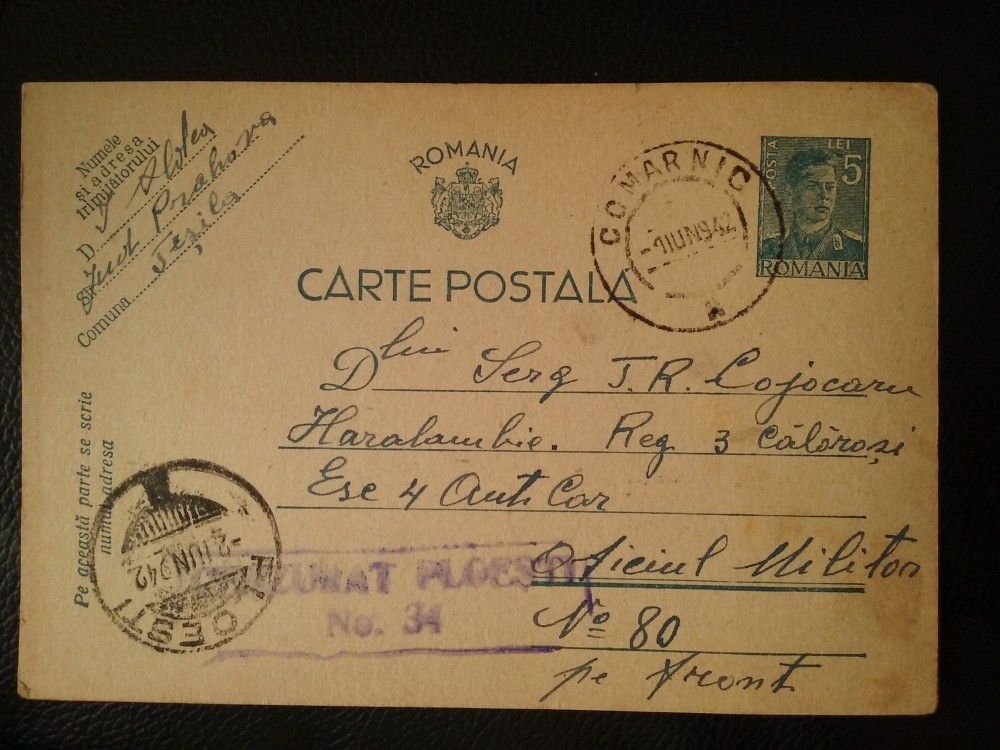 Numele
și adresa
trimițătorului
D
Jud Prahova
Comuna Teșila
ROMANIA
CARTE POSTALA
COMARNIC
-1IUN942
POSTA LEI 5
ROMANIA
Dlui Serg T.R. Cojocaru
Haralambie. Reg 3 Călărași
Esc 4 Anti Car
Oficiul Militar
No 80
pe front
Pe această parte se scrie
numai adresa
PLOESTI
-2IUN942
CENZURAT PLOEȘTI
No. 34